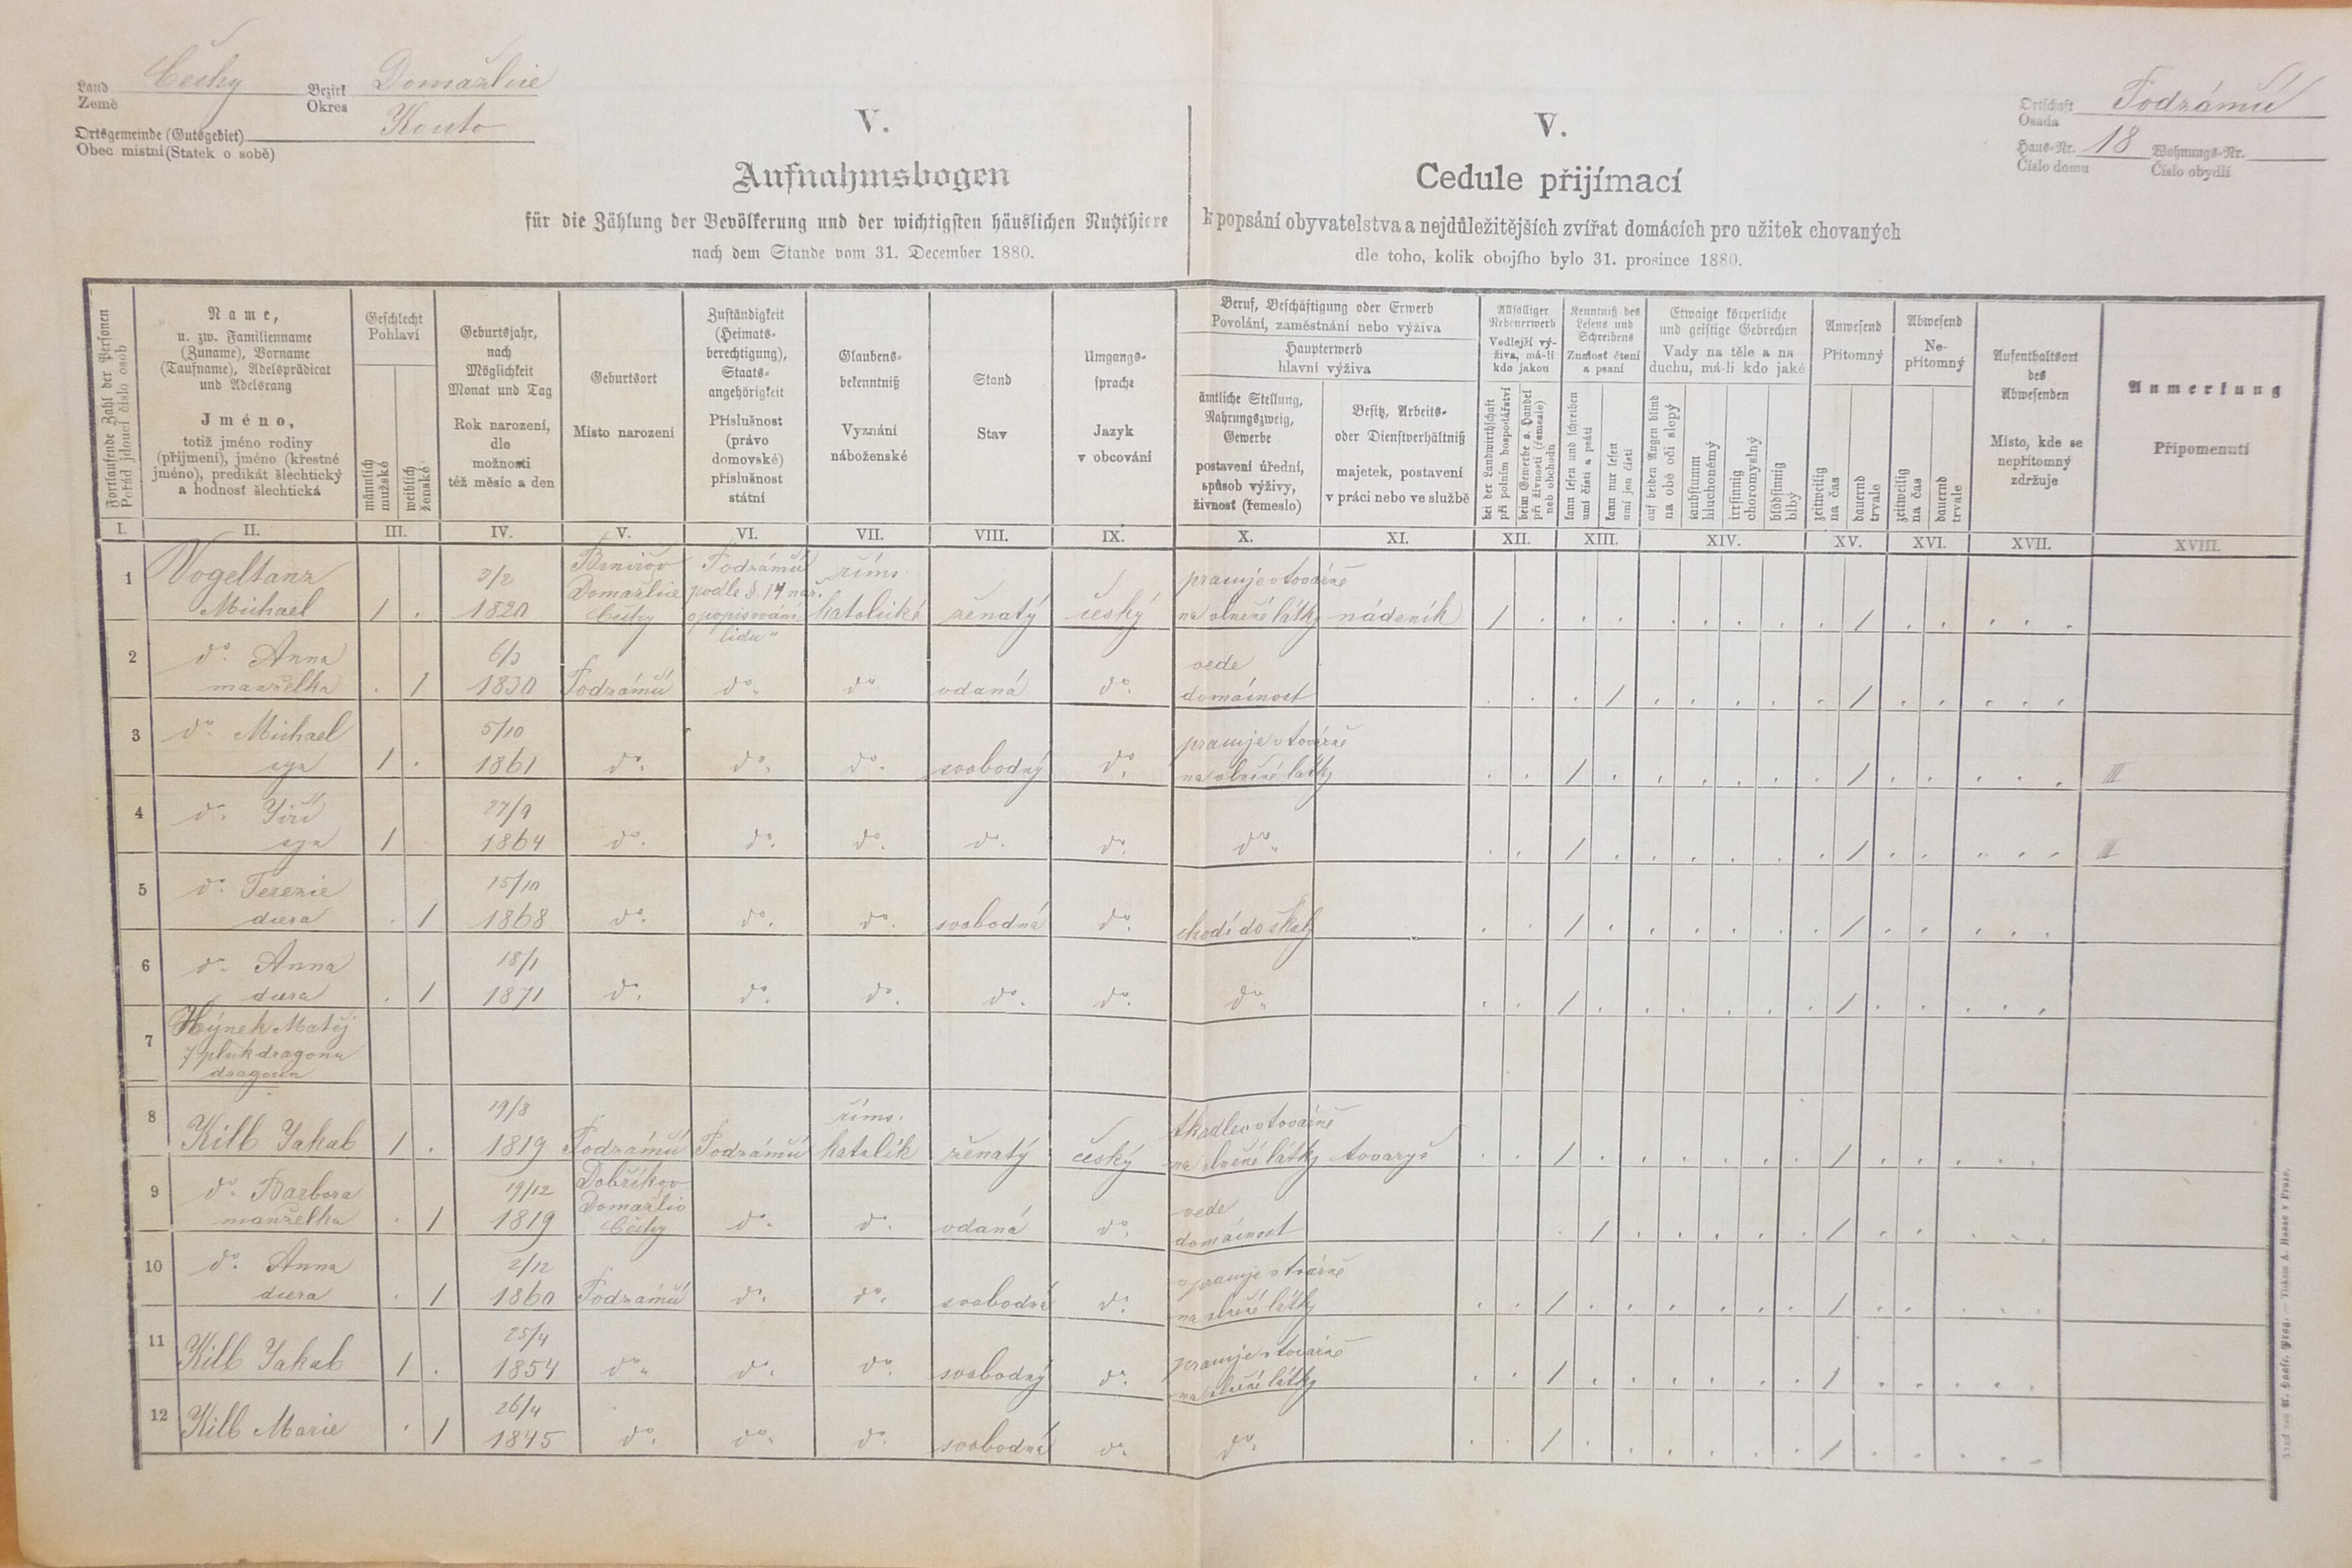 Land Čechy Bezirk Domažlice
Země Okres
Ortsgemeinde (Gutsgebiet) Kouto
Obec místní (Statek o sobě)
Ortschaft Podzámčí
Osada
Haus-Nr. 18 Wohnungs-Nr.
Číslo domu Číslo obydlí
V.
Aufnahmsbogen
für die Zählung der Bevölkerung und der wichtigsten häuslichen Nutzthiere
nach dem Stande vom 31. December 1880.
V.
Cedule přijímací
k popsání obyvatelstva a nejdůležitějších zvířat domácích pro užitek chovaných
dle toho, kolik obojího bylo 31. prosince 1880.
Fortlaufende Zahl der Personen
Pořád jdoucí číslo osob
Name,
u. zw. Familienname
(Zuname), Vorname
(Taufname), Adelsprädicat
und Adelsrang
Jméno,
totiž jméno rodiny
(příjmení), jméno (křestné
jméno), predikát šlechtický
a hodnosť šlechtická
Geschlecht
Pohlaví
männlich
mužské
weiblich
ženské
Geburtsjahr,
nach
Möglichkeit
Monat und Tag
Rok narození,
dle
možnosti
též měsíc a den
Geburtsort
Místo narození
Zuständigkeit
(Heimats-
berechtigung),
Staats-
angehörigkeit
Příslušnost
(právo
domovské)
příslušnost
státní
Glaubens-
bekenntniß
Vyznání
náboženské
Stand
Stav
Umgangs-
sprache
Jazyk
v obcování
Beruf, Beschäftigung oder Erwerb
Povolání, zaměstnání nebo výživa
Haupterwerb
hlavní výživa
ämtliche Stellung,
Nahrungszweig,
Gewerbe
postavení úřední,
spůsob výživy,
živnosť (řemeslo)
Besitz, Arbeits-
oder Dienstverhältniß
majetek, postavení
v práci nebo ve službě
Allfälliger
Nebenerwerb
Vedlejší vý-
živa, má-li
kdo jakou
bei der Landwirthschaft
při polním hospodářství
beim Gewerbe o. Handel
při živnosti (řemesle)
neb obchodu
Kenntniß des
Lesens und
Schreibens
Znalosť čtení
a psaní
kann lesen und schreiben
umí čísti a psáti
kann nur lesen
umí jen čísti
Etwaige körperliche
und geistige Gebrechen
Vady na těle a na
duchu, má-li kdo jaké
auf beiden Augen blind
na obě oči slepý
taubstumm
hluchoněmý
irrsinnig
choromyslný
blödsinnig
blbý
Anwesend
Přítomný
zeitweilig
na čas
dauernd
trvale
Abwesend
Ne-
přítomný
zeitweilig
na čas
dauernd
trvale
Aufenthaltsort
des
Abwesenden
Místo, kde se
nepřítomný
zdržuje
Anmerkung
Připomenutí
I. II. III. IV. V. VI. VII. VIII. IX. X. XI. XII. XIII. XIV. XV. XVI. XVII. XVIII.
1 Vogeltanz 3/2 Brnířov Podzámčí říms. pracuje v továrně
Michael 1 . 1820 Domažlice podle §. 14 nař. katolické ženatý český na vlněné látky nádeník 1
Čechy o popisování
lidu"
2 dº Anna 6/3 vede
manželka . 1 1830 Podzámčí dº dº vdaná dº domácnost
3 dº Michael 5/10 pracuje v továrně
syn 1 . 1861 dº dº dº svobodný dº na vlněné látky III
4 dº Jiří 27/9
syn 1 1864 dº dº dº dº dº dº III
5 dº Terezie 15/10
dcera . 1 1868 dº dº dº svobodná dº chodí do školy
6 dº Anna 18/1
dcera . 1 1871 dº dº dº dº dº dº
7 Hýnek Matěj
7 pluk dragonu
dragoun
8 19/8 říms. tkadlec v továrně
Kilb Jakub 1 . 1819 Podzámčí Podzámčí katolík ženatý český na vlněné látky tovaryš
9 dº Barbora 19/12 Dobříkov vede
manželka . 1 1819 Domažlic dº dº vdaná dº domácnost
Čechy
10 dº Anna 2/12 pracuje v továrně
dcera . 1 1860 Podzámčí dº dº svobodná dº na vlněné látky
11 25/4 pracuje v továrně
Kilb Jakub 1 . 1854 dº dº dº svobodný dº na vlněné látky
12 26/4
Kilb Marie . 1 1845 dº dº dº svobodná dº dº